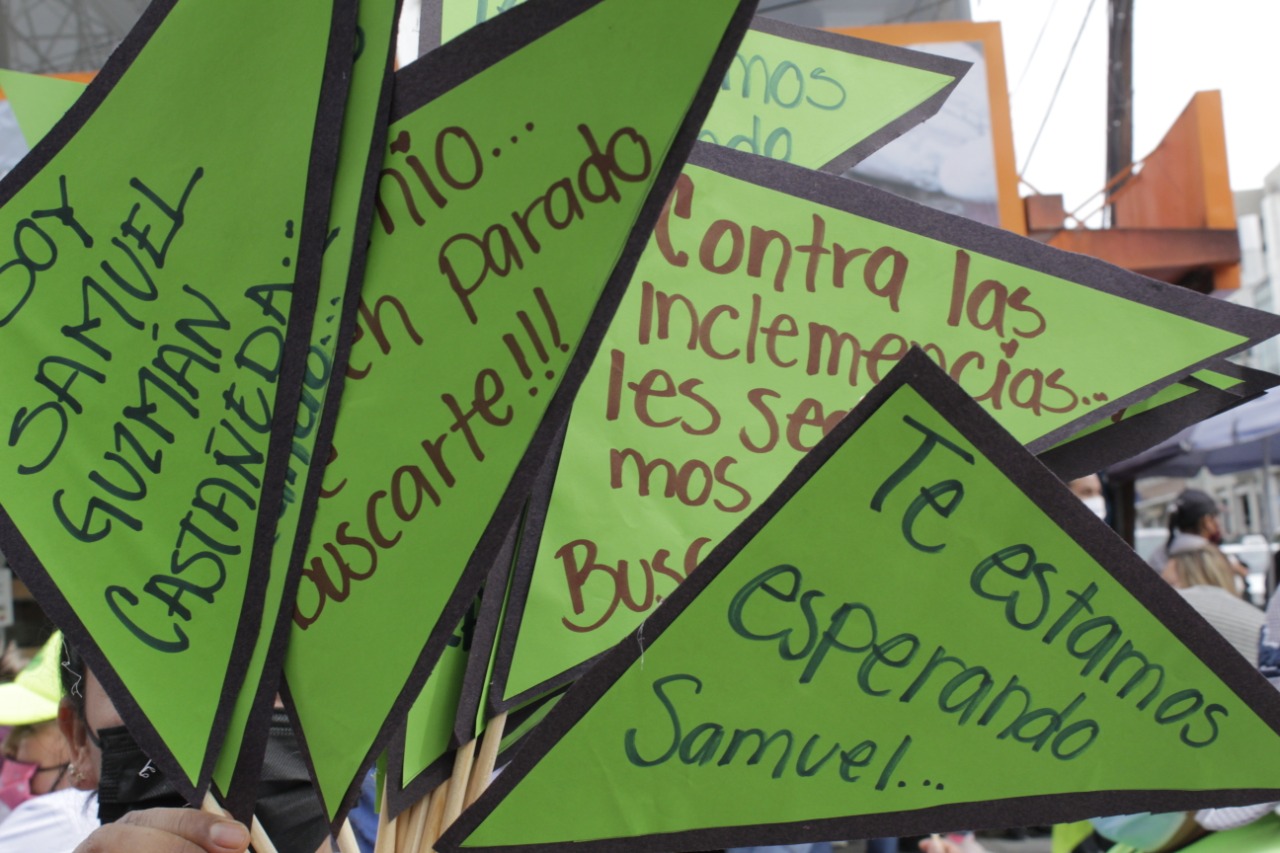 SOY
SAMUEL
GUZMÁN
CASTAÑEDA..
nio...
en parado
buscarte!!!
mos
ndo
Contra las
Inclemencias...
les se
mos
Busc
Te estamos
esperando
Samuel...